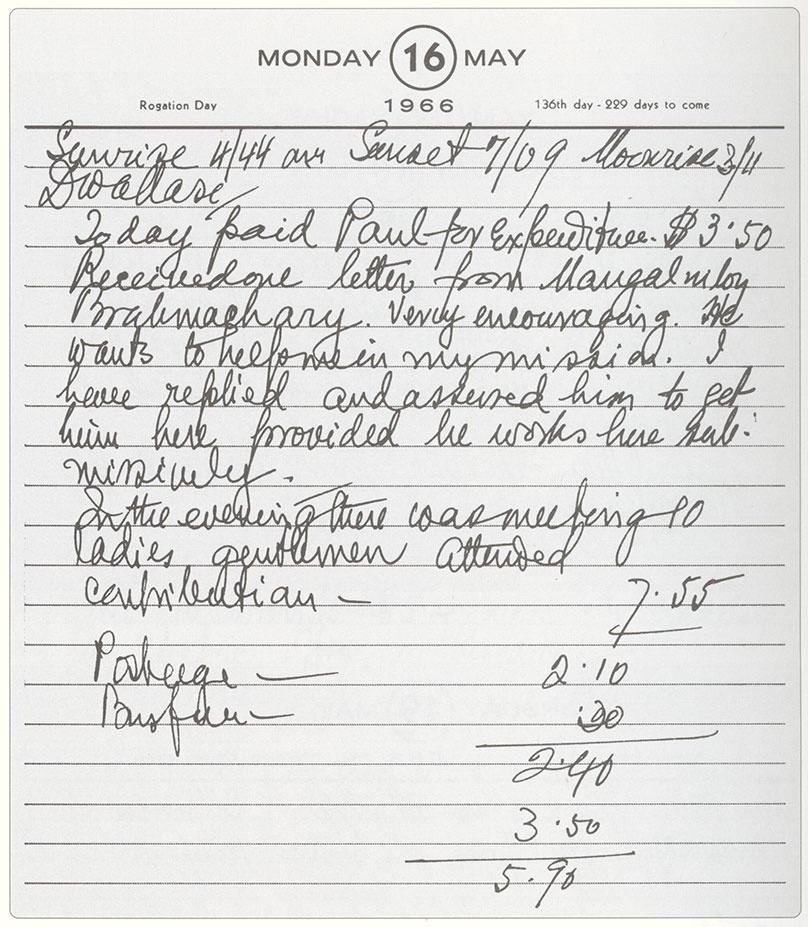 MONDAY 16 MAY
Rogation Day 1966 136th day - 229 days to come
Sunrise 4/44 am Sunset 7/09 Moonrise 3/11
Dwadasi
Today paid Paul for Expenditure. $ 3.50
Received one letter from Mangalniloy
Brahmachary. Very encouraging. He
wants to help me in my mission. I
have replied and assured him to get
him here provided he works here sub-
missively.
In the evening there was meeting 10
ladies gentlemen attended
contribution — 7.55
Postage — 2.10
Busfare — .30
2.40
3.50
5.90